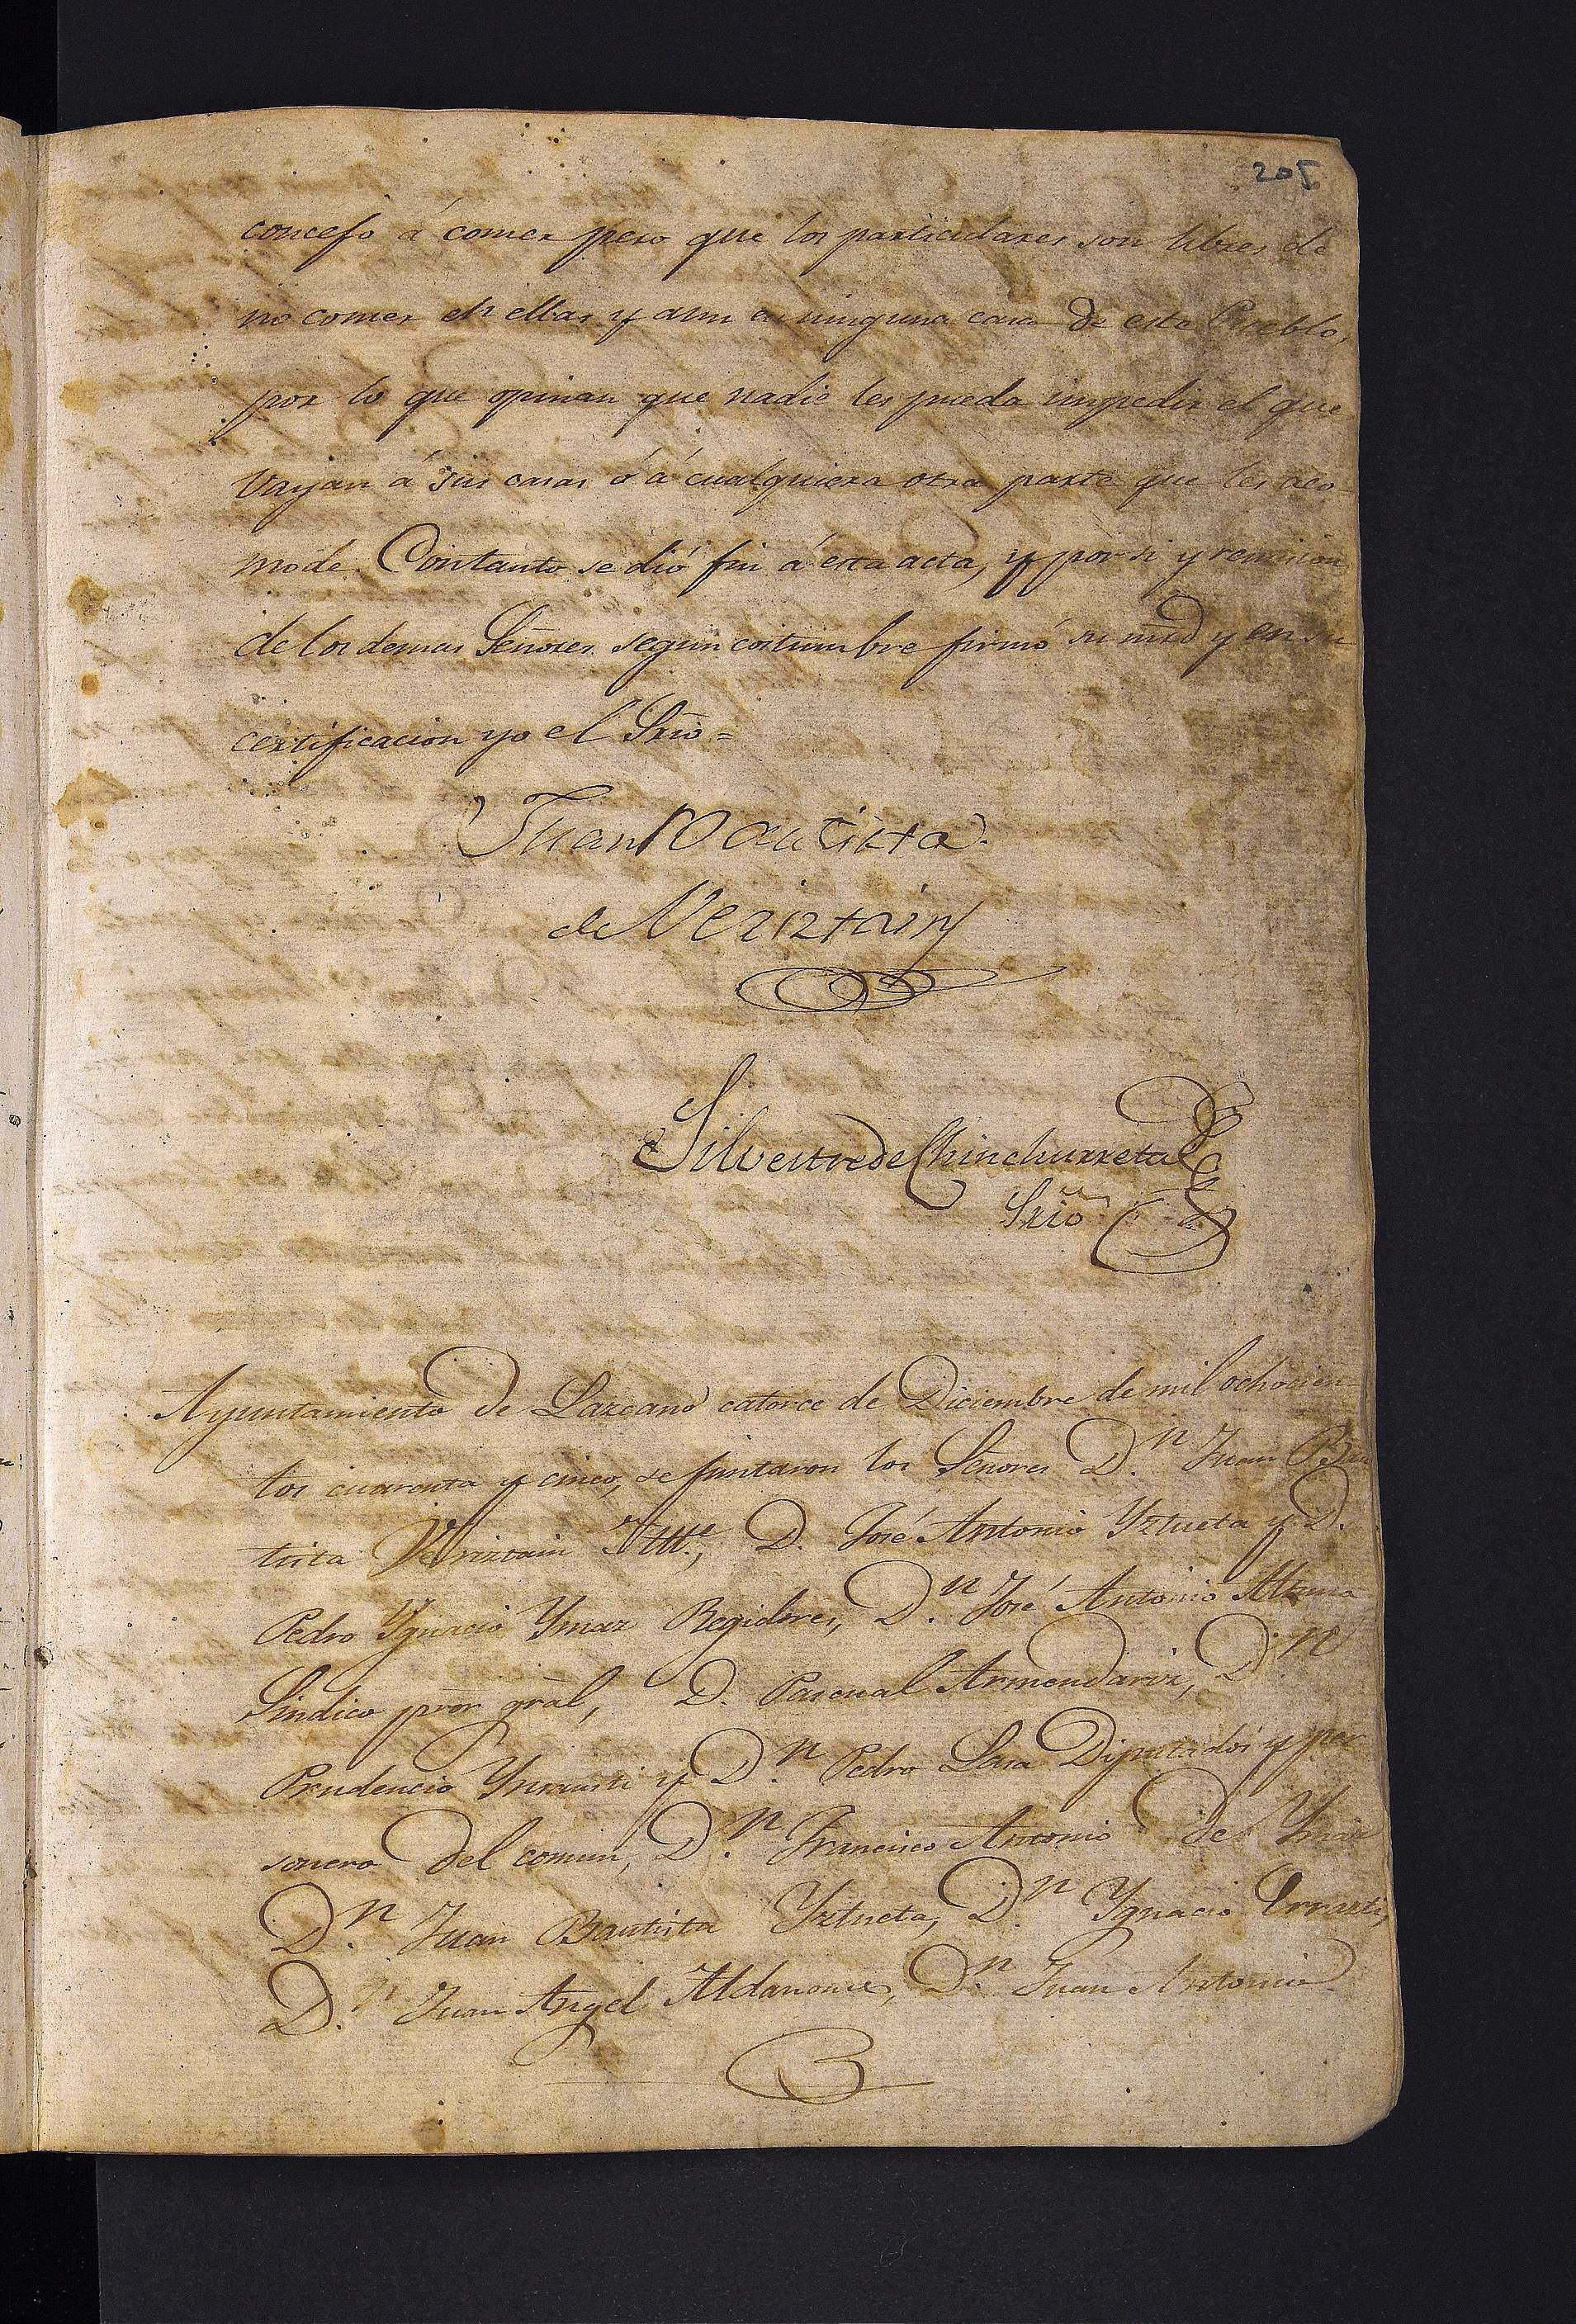 205
concejo á comer pero que los particulares son libres de
no comer en ellas y aun en ninguna casa de este Pueblo,
por lo que opinan que nadie les pueda impedir el que
vayan á sus casas ó á cualquiera otra parte que les aco-
mode. Contanto se dió fin á esta acta, y por si y
de los demas Señores segun costumbre firmó su mrd y en su
certificacion yo el Srio =
Juan Bautista
de Veriztain
Silvestre de Chinchurreta
Srio
Ayuntamiento de Lazcano catorce de Diciembre de mil ochocien-
tos cuarenta y cinco, se juntaron los Señores D.n Juan Bau
tista Veriztain D. José Antonio Yztueta y D.
Pedro Ygnacio Ymaz Regidores, D.n José Antonio Altuna
Sindico pror gral, D. Pascual Armendariz, D.n
Prudencio Ynsausti y D.n Pedro Lasa Diputados y per
sonero del comun, D.n Francisco Antonio de Ymaz
D.n Juan Bautista Yztueta, D.n Ygnacio Errasti,
D.n Juan Angel Aldanondo, D.n Juan Antonio